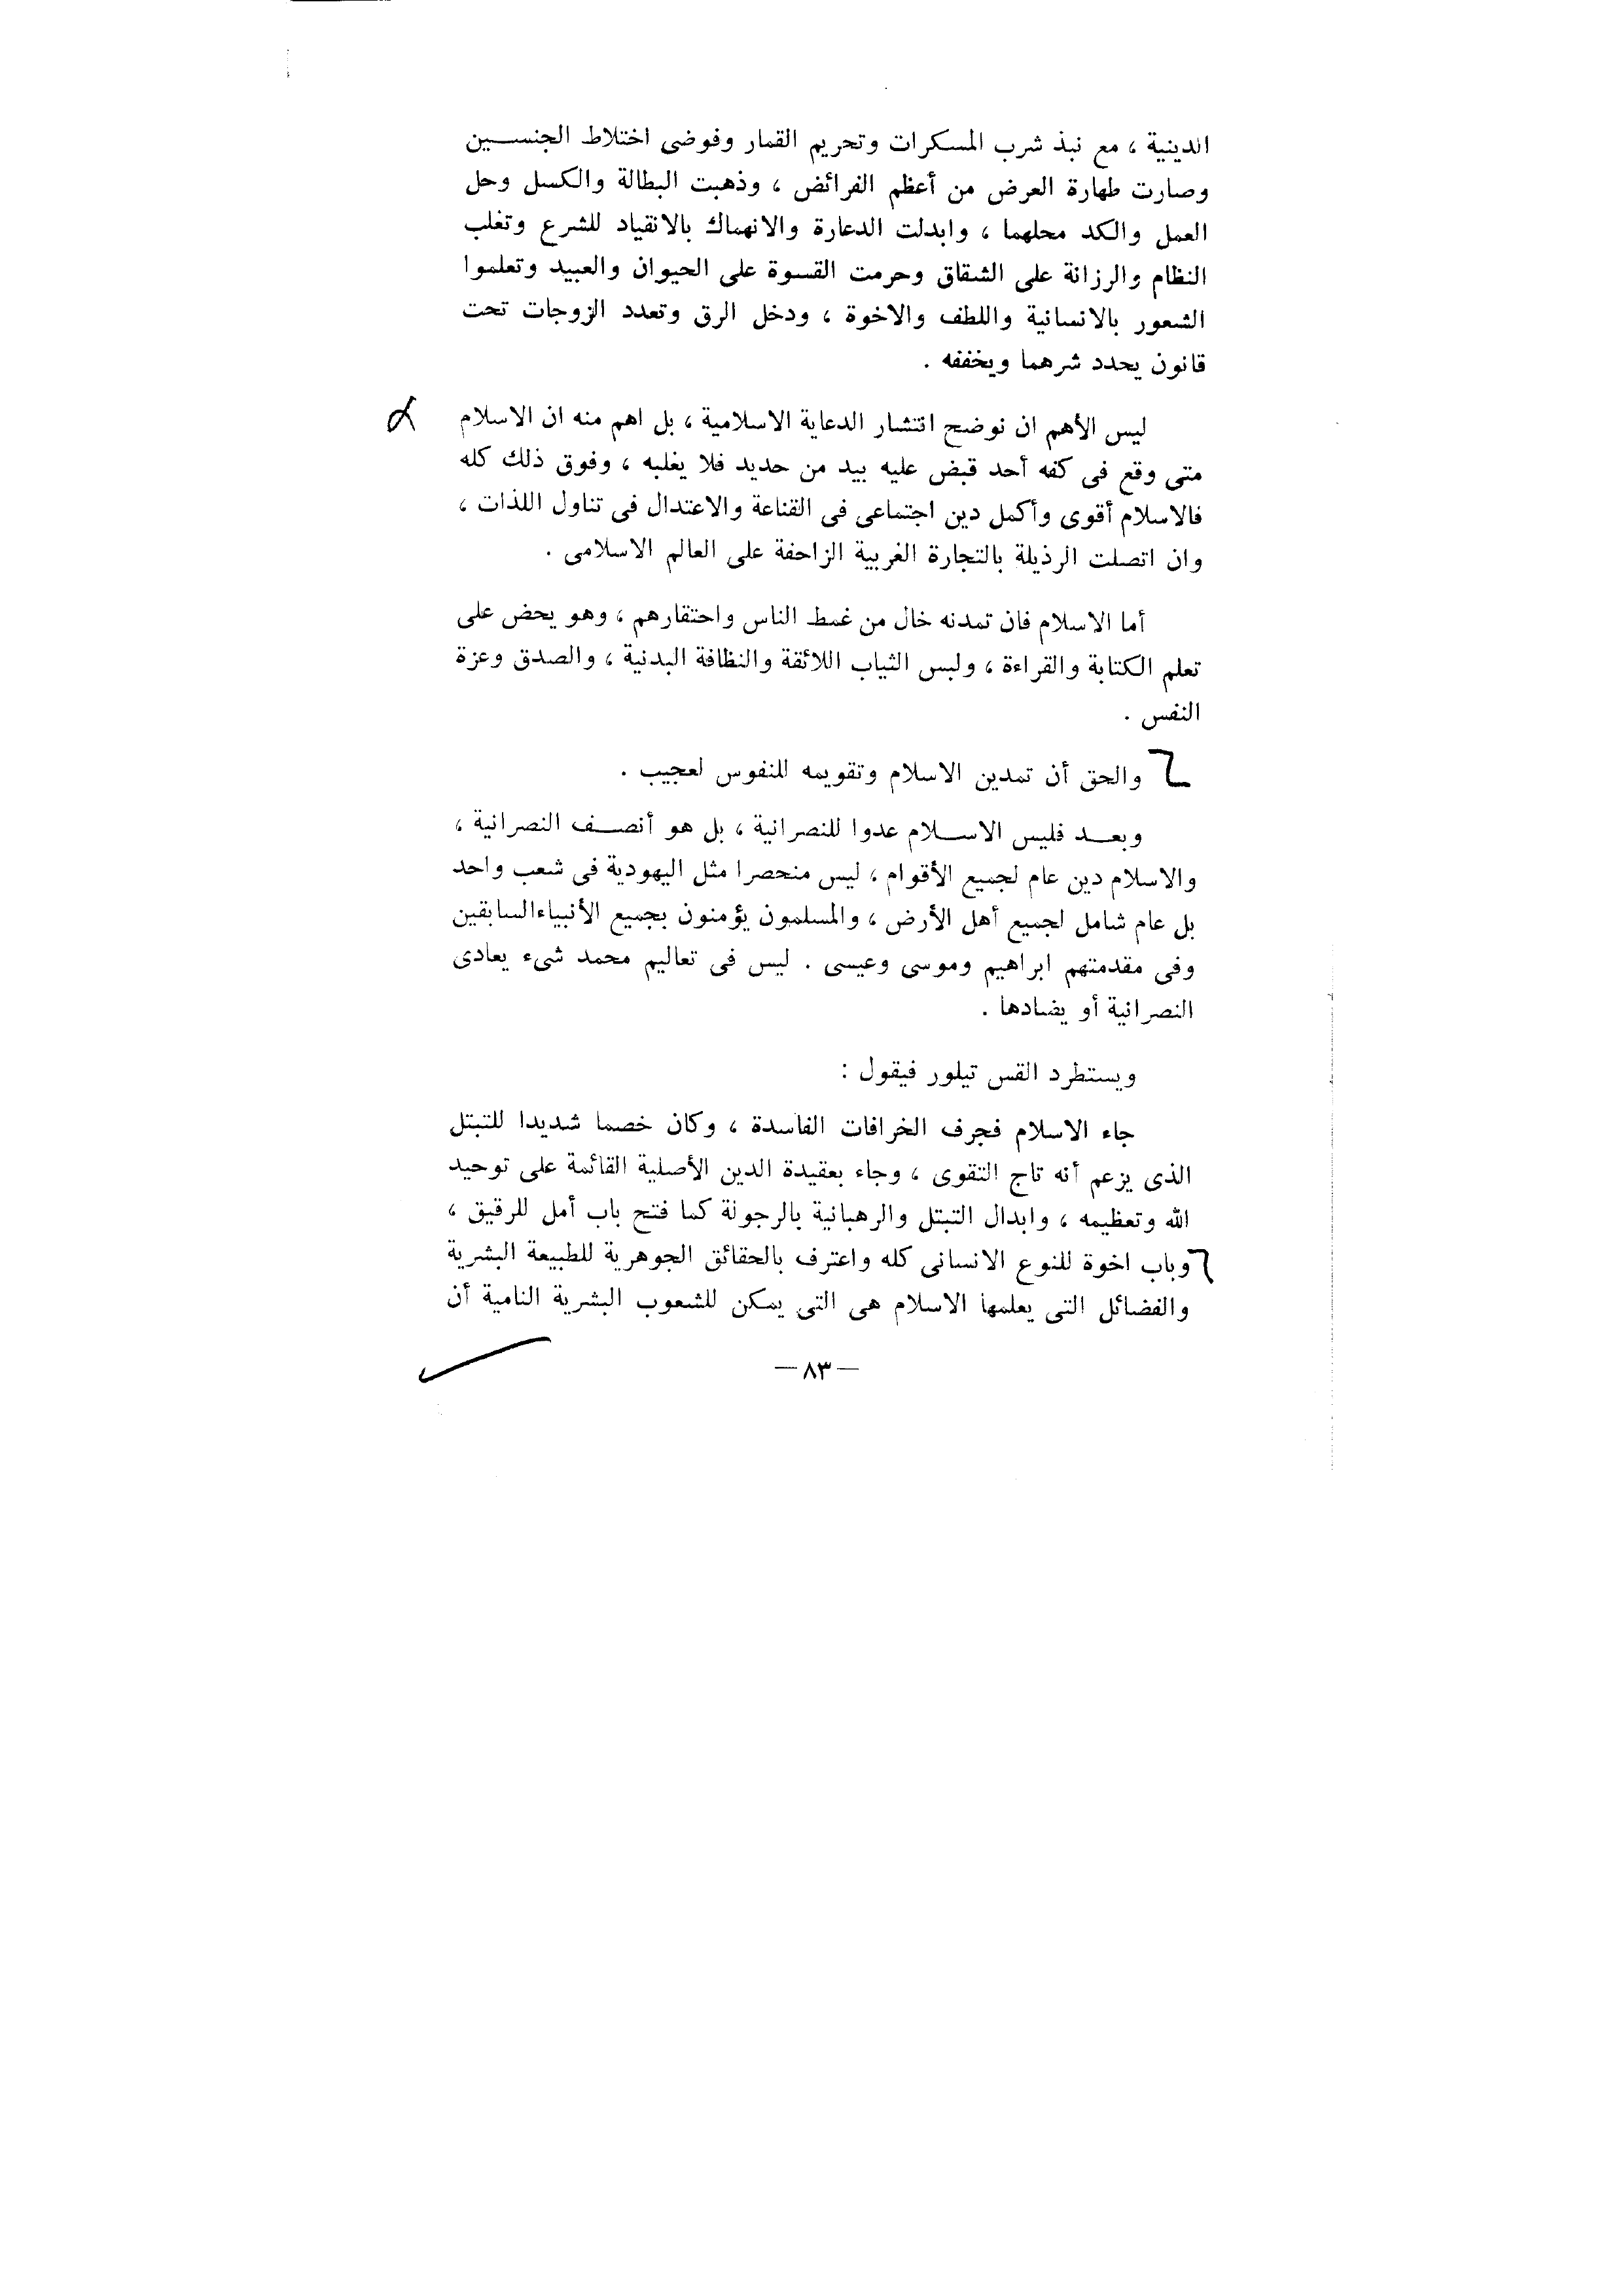 الدينية ، مع نبذ شرب المسكرات وتحريم القمار وفوضى اختلاط الجنسين
وصارت طهارة العرض من أعظم الفرائض ، وذهبت البطالة والكسل وحل
العمل والكد محلهما ، وابدلت الدعارة والانهماك بالانقياد للشرع وتغلب
النظام والرزانة على الشقاق وحرمت القسوة على الحيوان والعبيد وتعلموا
الشعور بالانسانية واللطف والاخوة ، ودخل الرق وتعدد الزوجات تحت
قانون يحدد شرهما ويخففه .
ليس الأهم ان نوضح انتشار الدعاية الاسلامية ، بل اهم منه ان الاسلام
متى وقع فى كفه أحد قبض عليه بيد من حديد فلا يغلبه ، وفوق ذلك كله
فالاسلام أقوى وأكمل دين اجتماعى فى القناعة والاعتدال فى تناول اللذات ،
وان اتصلت الرذيلة بالتجارة الغربية الزاحفة على العالم الاسلامى .
أما الاسلام فان تمدنه خال من غمط الناس واحتقارهم ، وهو يحض على
تعلم الكتابة والقراءة ، ولبس الثياب اللائقة والنظافة البدنية ، والصدق وعزة
النفس .
والحق أن تمدين الاسلام وتقويمه للنفوس لعجيب .
وبعد فليس الاسلام عدوا للنصرانية ، بل هو أنصف النصرانية ،
والاسلام دين عام لجميع الأقوام ، ليس منحصرا مثل اليهودية فى شعب واحد
بل عام شامل لجميع أهل الأرض ، والمسلمون يؤمنون بجميع الأنبياء السابقين
وفى مقدمتهم ابراهيم وموسى وعيسى . ليس فى تعاليم محمد شىء يعادى
النصرانية أو يضادها .
ويستطرد القس تيلور فيقول :
جاء الاسلام فجرف الخرافات الفاسدة ، وكان خصما شديدا للتبتل
الذى يزعم أنه تاج التقوى ، وجاء بعقيدة الدين الأصلية القائمة على توحيد
الله وتعظيمه ، وابدال التبتل والرهبانية بالرجولة كما فتح باب أمل للرقيق ،
وباب اخوة للنوع الانسانى كله واعترف بالحقائق الجوهرية للطبيعة البشرية
والفضائل التى يعلمها الاسلام هى التى يمكن للشعوب البشرية النامية أن
— ٨٣ —